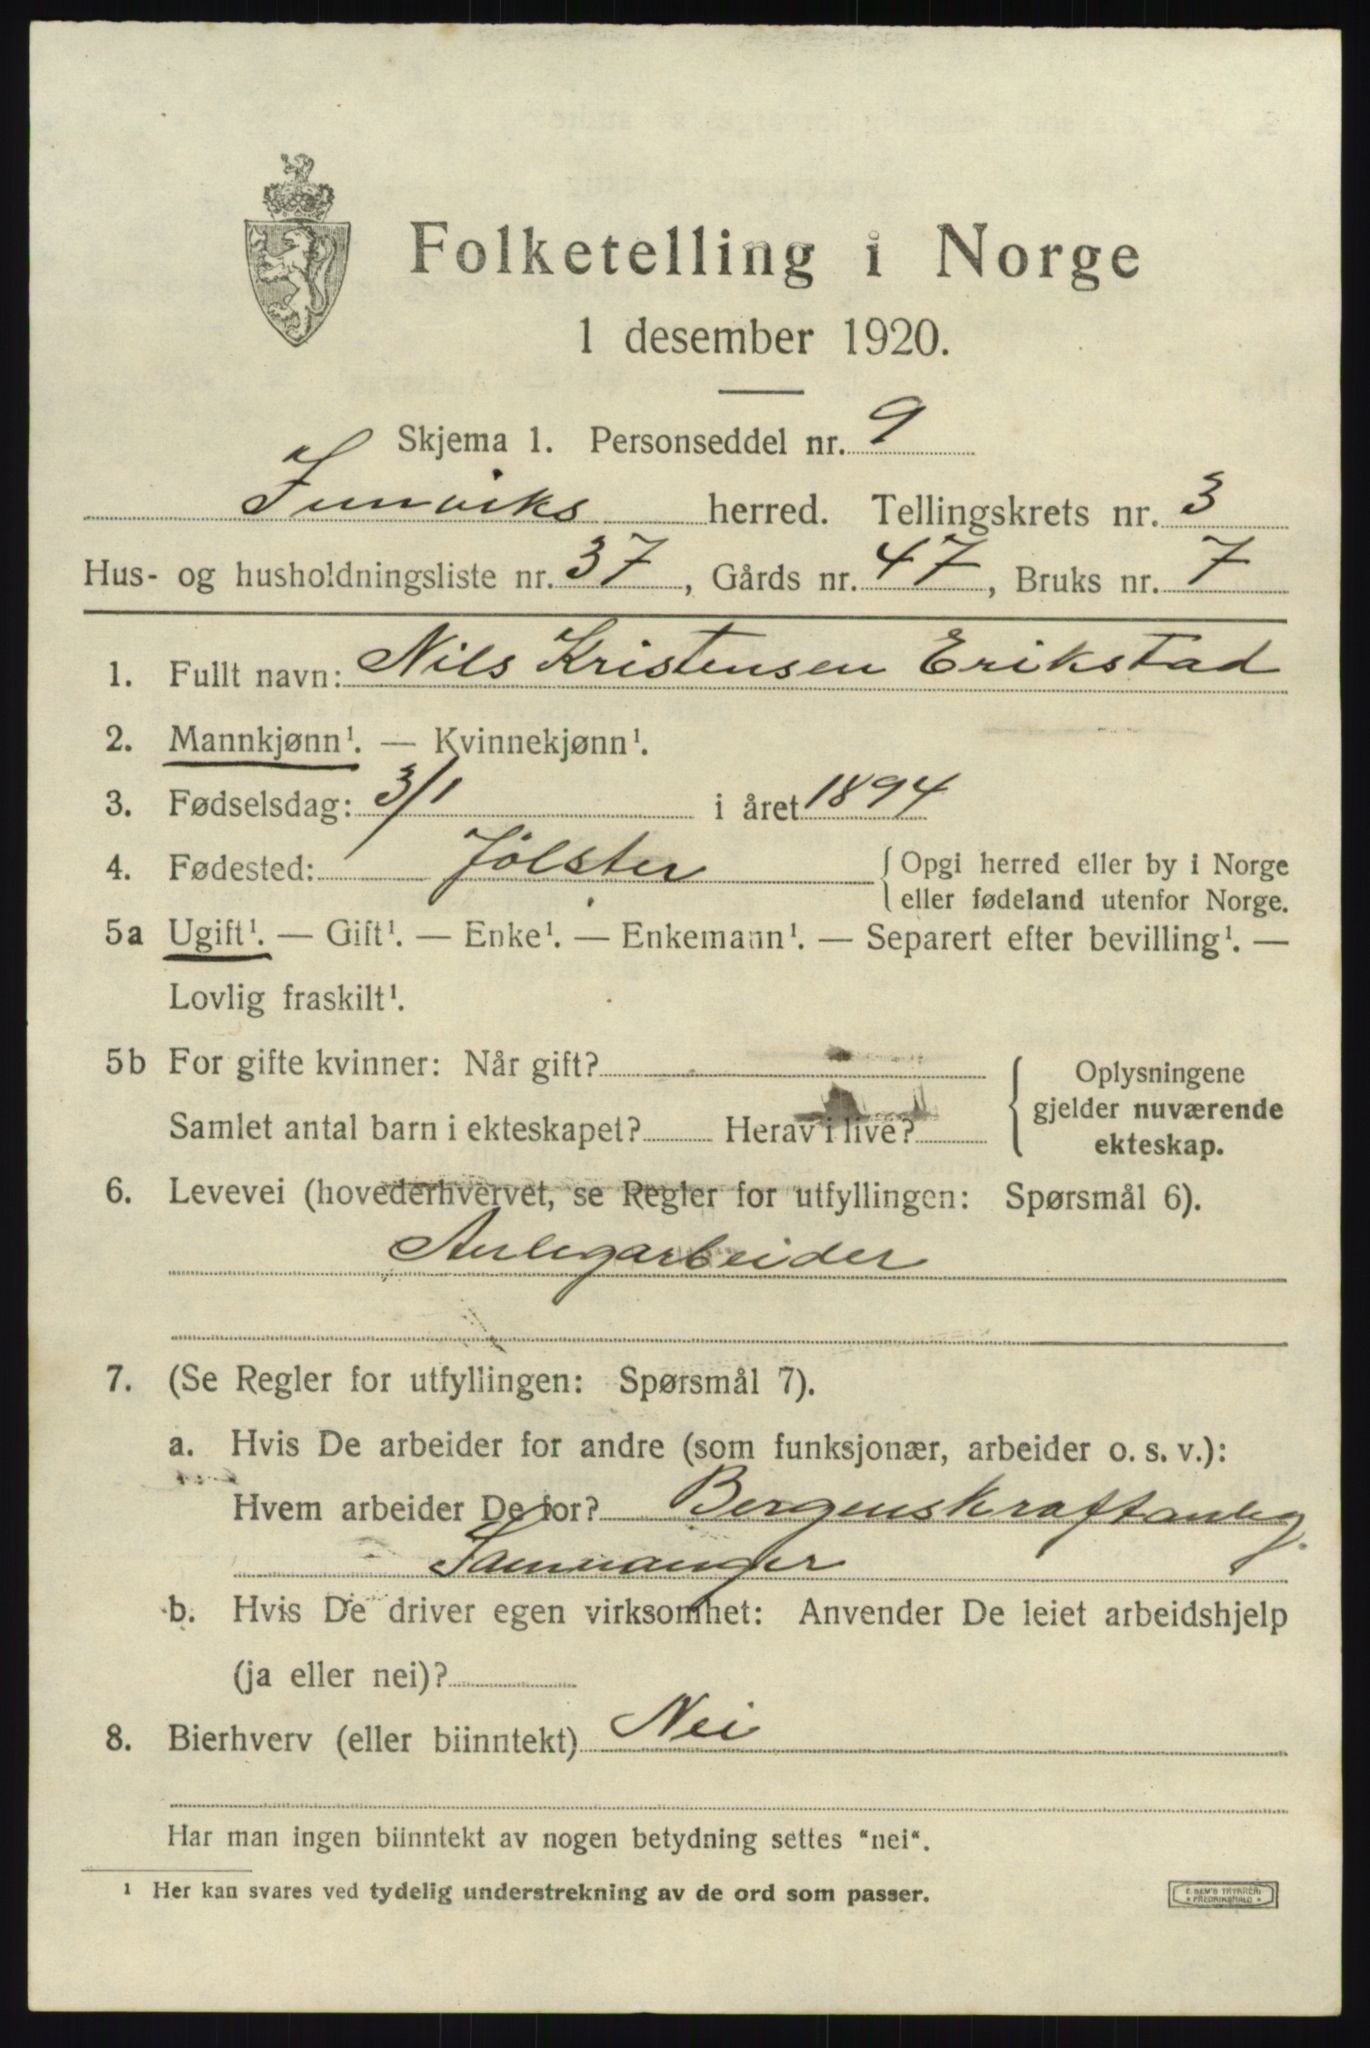 Folketelling i Norge
1 desember 1920.
Skjema 1. Personseddel nr. 9
herred. Tellingskrets nr. 3
Hus- og husholdningsliste nr. 37, Gårds nr. 47, Bruks nr. 7
1. Fullt navn: Nils Kristensen Erikstad
2. Mannkjønn¹. — Kvinnekjønn¹.
3. Fødselsdag: 3/1 i året 1894
4. Fødested: Jölster { Opgi herred eller by i Norge
eller fødeland utenfor Norge.
5a Ugift¹. — Gift¹. — Enke¹. — Enkemann¹. — Separert efter bevilling¹. —
Lovlig fraskilt¹.
5b For gifte kvinner: Når gift?
Samlet antal barn i ekteskapet? Herav i live?
{ Oplysningene
gjelder nuværende
ekteskap.
6. Levevei (hovederhvervet, se Regler for utfyllingen: Spørsmål 6).
Anlegarbeider
7. (Se Regler for utfyllingen: Spørsmål 7).
a. Hvis De arbeider for andre (som funksjonær, arbeider o. s. v.):
Hvem arbeider De for? Bergenskraftanleg.
Samnanger
b. Hvis De driver egen virksomhet: Anvender De leiet arbeidshjelp
(ja eller nei)?
8. Bierhverv (eller biinntekt) Nei
Har man ingen biinntekt av nogen betydning settes "nei".
¹ Her kan svares ved tydelig understrekning av de ord som passer.
E. SEM'S TRYKKERI
FREDRIKSHALD